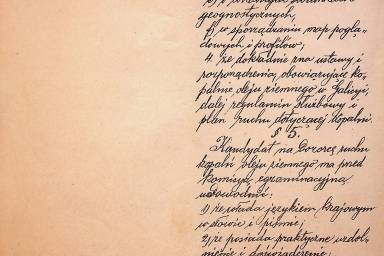 geognostycznych,
f) w sporządzaniu map poglą-
dowych i profilów;
4. że dokładnie zna ustawy i
rozporządzenia, obowiązujące ko-
palnie oleju ziemnego w Galicyi,
dalej regulamin służbowy i
plan ruchu dotyczącej kopalni.
§ 5.
Kandydat na Dozorcę ruchu
kopalń oleju ziemnego ma przed
Komisyą egzaminacyjną
udowodnić:
1) że włada językiem krajowym
w słowie i piśmie;
2) że posiada praktyczne uzdol-
nienie i doświadczenie;